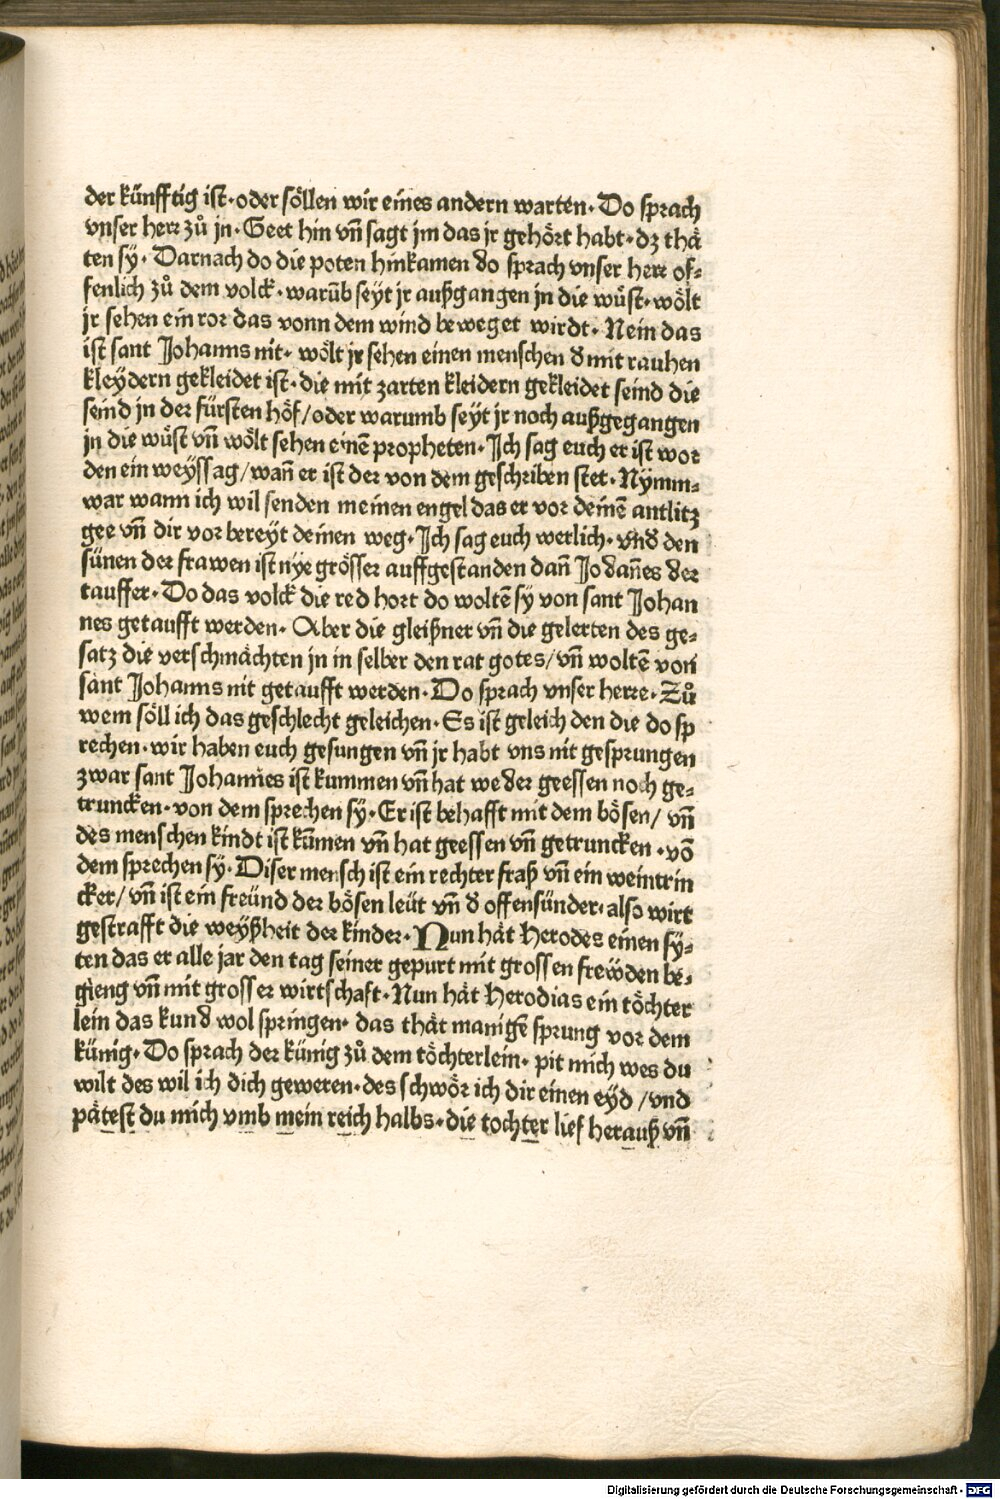 der künfftig ist·oder söllen wir eines andern warten·Do sprach
vnser herr zů jn·Geet hin vñ sagt jm das jr gehört habt·dz thä
ten sy·Darnach do die poten hinkamen do sprach vnser herr of⸗
fenlich zů dem volck·warũb seyt jr außgangen jn die wüst·wölt
jr sehen ein ror das vonn dem wind beweget wirdt·Nein das
ist sant Johanns nit·wölt jr sehen einen menschen d mit rauhen
kleydern gekleidet ist·die mit zarten kleidern gekleidet seind die
seind jn der fürsten höf/oder warumb seyt jr noch außgegangen
jn die wüst vñ wölt sehen einẽ propheten·Jch sag euch er ist wor
den ein weyssag/wañ er ist der von dem geschriben stet·Nymm⸗
war wann ich wil senden meinen engel das er vor deinẽ antlitz
gee vñ dir vor bereyt deinen weg·Jch sag euch werlich·vnd den
sünen der frawen ist nye grösser auffgestanden dañ Jodañes der
tauffer·Do das volck die red hort do woltẽ sy von sant Johan
nes getaufft werden·Aber die gleißner vñ die gelerten des ge⸗
satz die verschmächten jn in selber den rat gotes/vñ woltẽ von
sant Johanns nit getaufft werden·Do sprach vnser herre·Zů
wem söll ich das geschlecht geleichen·Es ist geleich den die do sp
rechen·wir haben euch gesungen vñ jr habt vns nit gesprungen
zwar sant Johannes ist kummen vñ hat weder geessen noch ge⸗
truncken·von dem sprechen sy·Er ist behafft mit dem bösen/vñ
des menschen kindt ist kũmen vñ hat geessen vñ getruncken·võ
dem sprechen sy·Diser mensch ist ein rechter fraß vñ ein weintrin
cker/vñ ist ein freünd der bösen leüt vñ d offensünder·also wirt
gestrafft die weyßheit der kinder·Nun hät Herodes einen sy⸗
ten das er alle jar den tag seiner gepurt mit grossen frewden be⸗
gieng vñ mit grosser wirtschaft·Nun hät Herodias ein töchter
lein das kund wol springen·das thät manigẽ sprung vor dem
künig·Do sprach der künig zů dem töchterlein·pit mich wes du
wilt des wil ich dich geweren·des schwör ich dir einen eyd/vnd
pätest du mich vmb mein reich halbs·die tochter lief herauß vñ
Digitalisierung gefördert durch die Deutsche Forschungsgemeinschaft - DFG